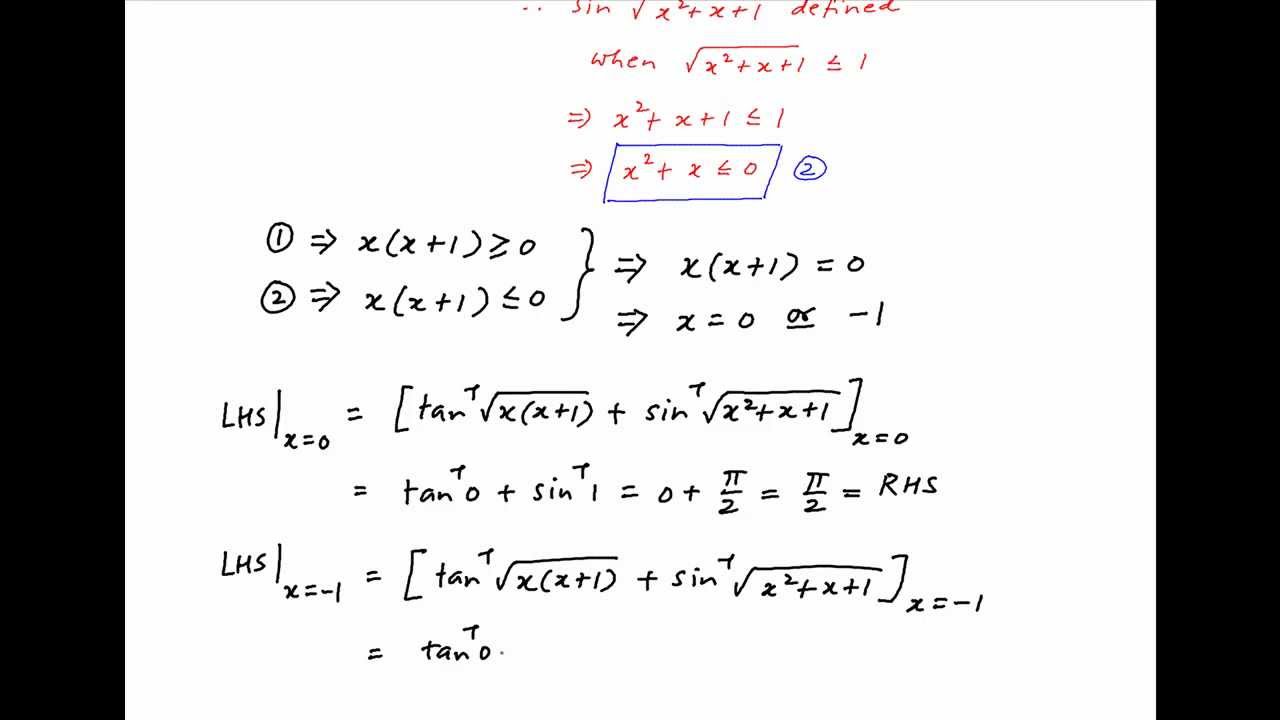 ∴ sin √x²+x+1 defined
when √x²+x+1 ≤ 1
⇒ x²+ x+1 ≤ 1
⇒ x²+ x ≤ 0 ②
① ⇒ x(x+1) ≥ 0
② ⇒ x(x+1) ≤ 0 } ⇒ x(x+1) = 0
⇒ x = 0 or -1
LHS|x=0 = [tan⁻¹√x(x+1) + sin⁻¹√x²+x+1]x=0
= tan⁻¹0 + sin⁻¹1 = 0 + π/2 = π/2 = RHS
LHS|x=-1 = [tan⁻¹√x(x+1) + sin⁻¹√x²+x+1]x=-1
= tan⁻¹0